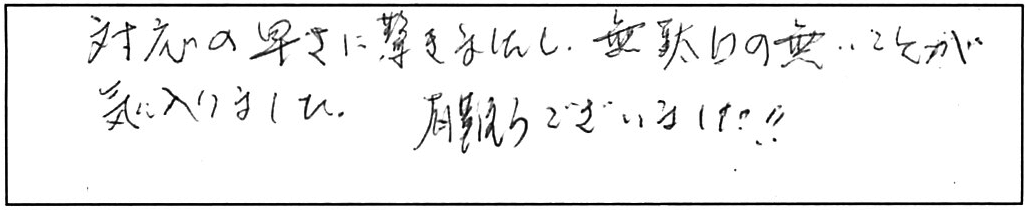 対応の早さに驚きましたし、無駄口の無いことが
気に入りました。 有難うございました!!